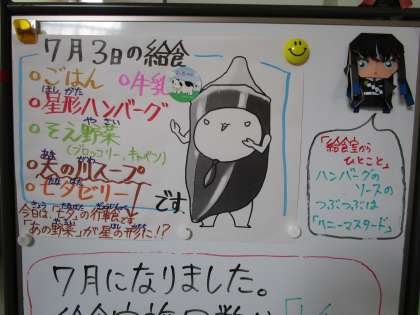 7月3日の給食
ごはん
牛乳
ほし がた
星形ハンバーグ
や さい
そえ野菜
(ブロッコリー・キャベツ)
あま がわ
天の川スープ
七夕ゼリー
です。
今日は「七夕」の行給です
「あの野菜」が星の形に!?
「給食室から
ひとこと」
ハンバーグの
ソースの
つぶつぶは
「ハニーマスタード」
7月になりました。